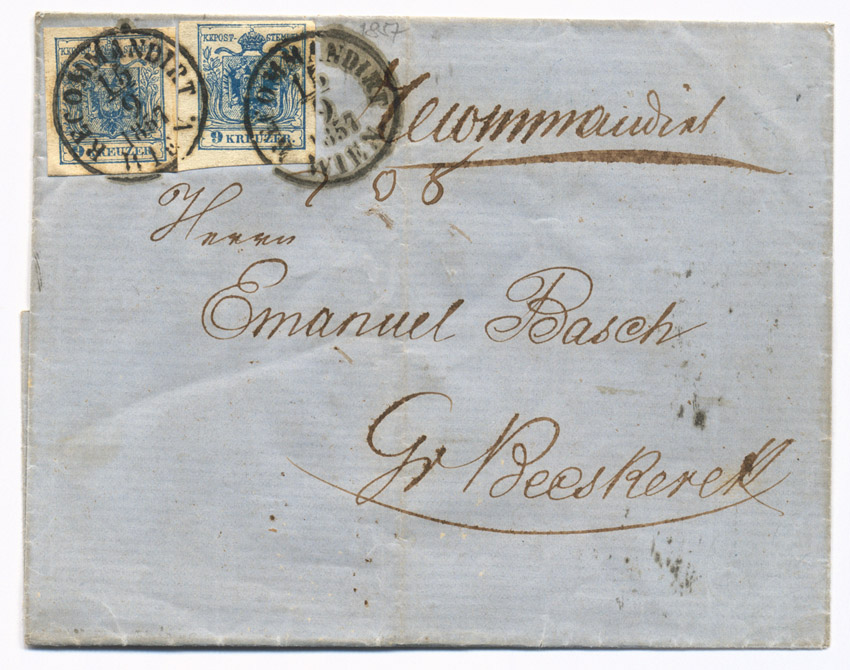 1857
KKPOST-STEMPEL
KKPOST-STEMPEL
9 KREUZER
9 KREUZER
RECOMMANDIRT
15
9
1857
WIEN
RECOMMANDIRT
15
9
1857
WIEN
Recommandirt
708
Herrn
Emanuel Basch
Gr Becskerek